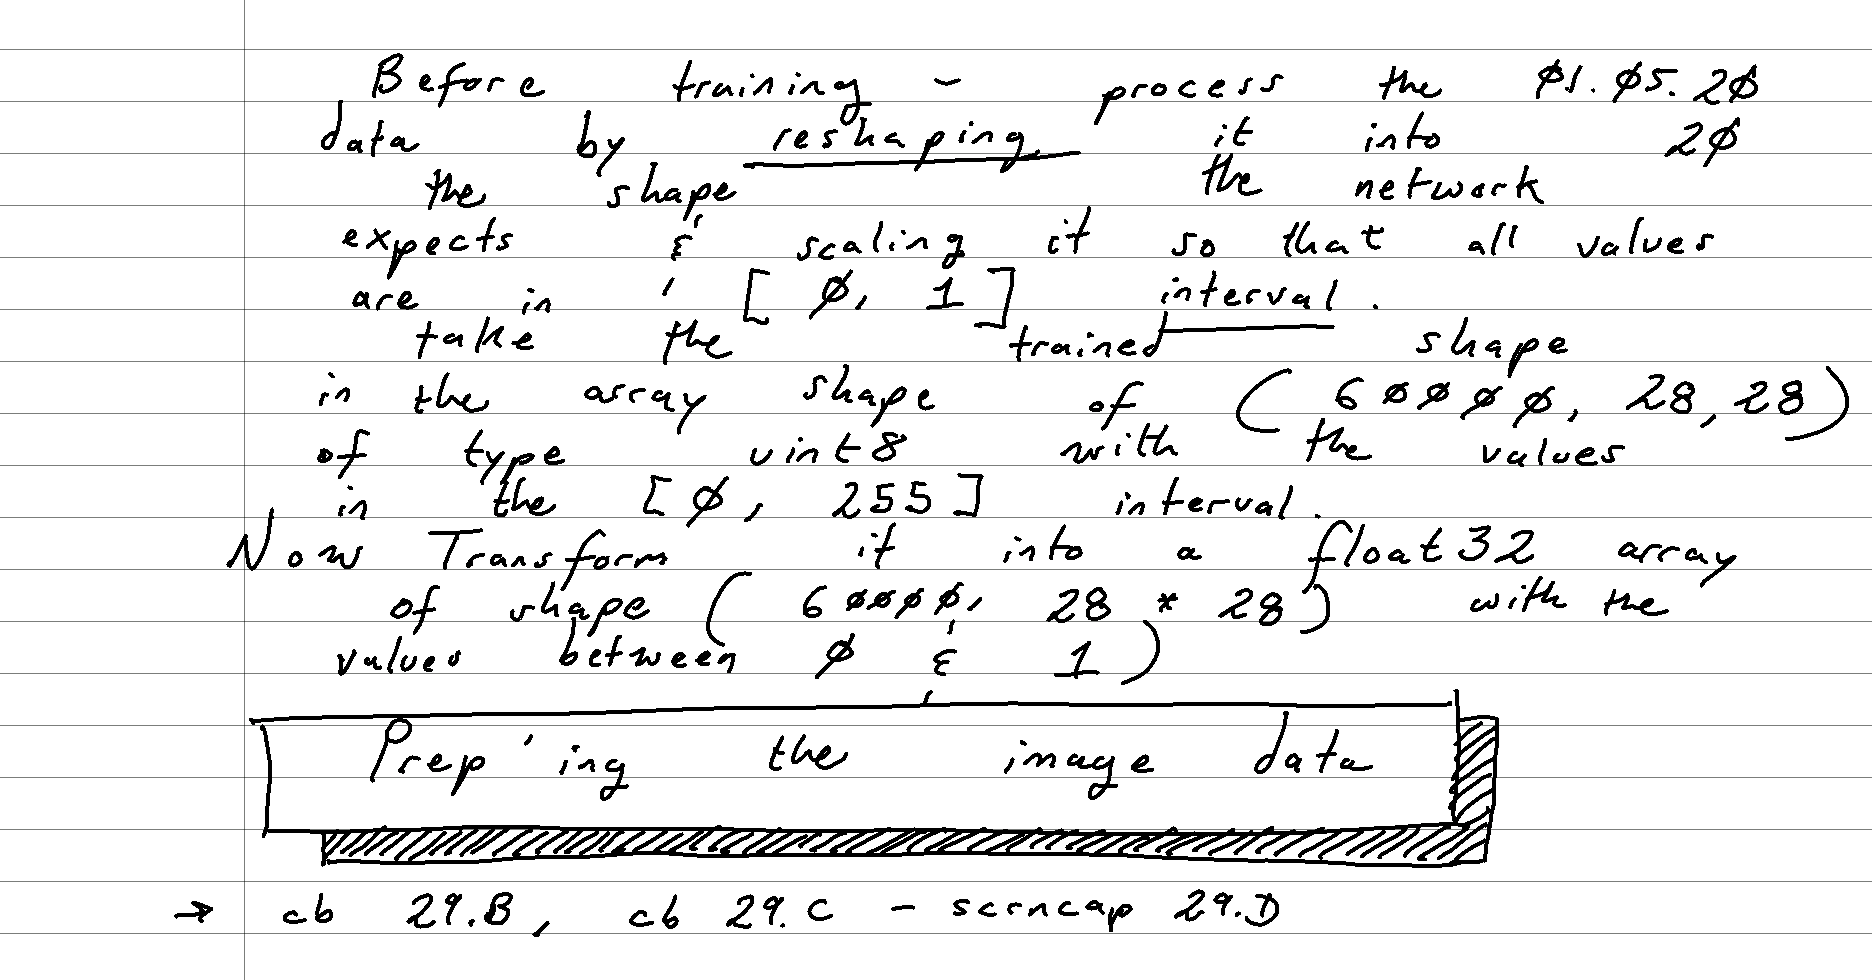 Before training - process the 01.05.20
data by reshaping it into 20
the shape the network
expects & scaling it so that all values
are in [0, 1] interval.
take the trained shape
in the array shape of (60000, 28, 28)
of type uint8 with the values
in the [0, 255] interval.
Now Transform it into a float32 array
of shape (60000, 28 * 28) with the
values between 0 & 1)
Prep'ing the image data
→ cb 29.B, cb 29.C - scrncap 29.D